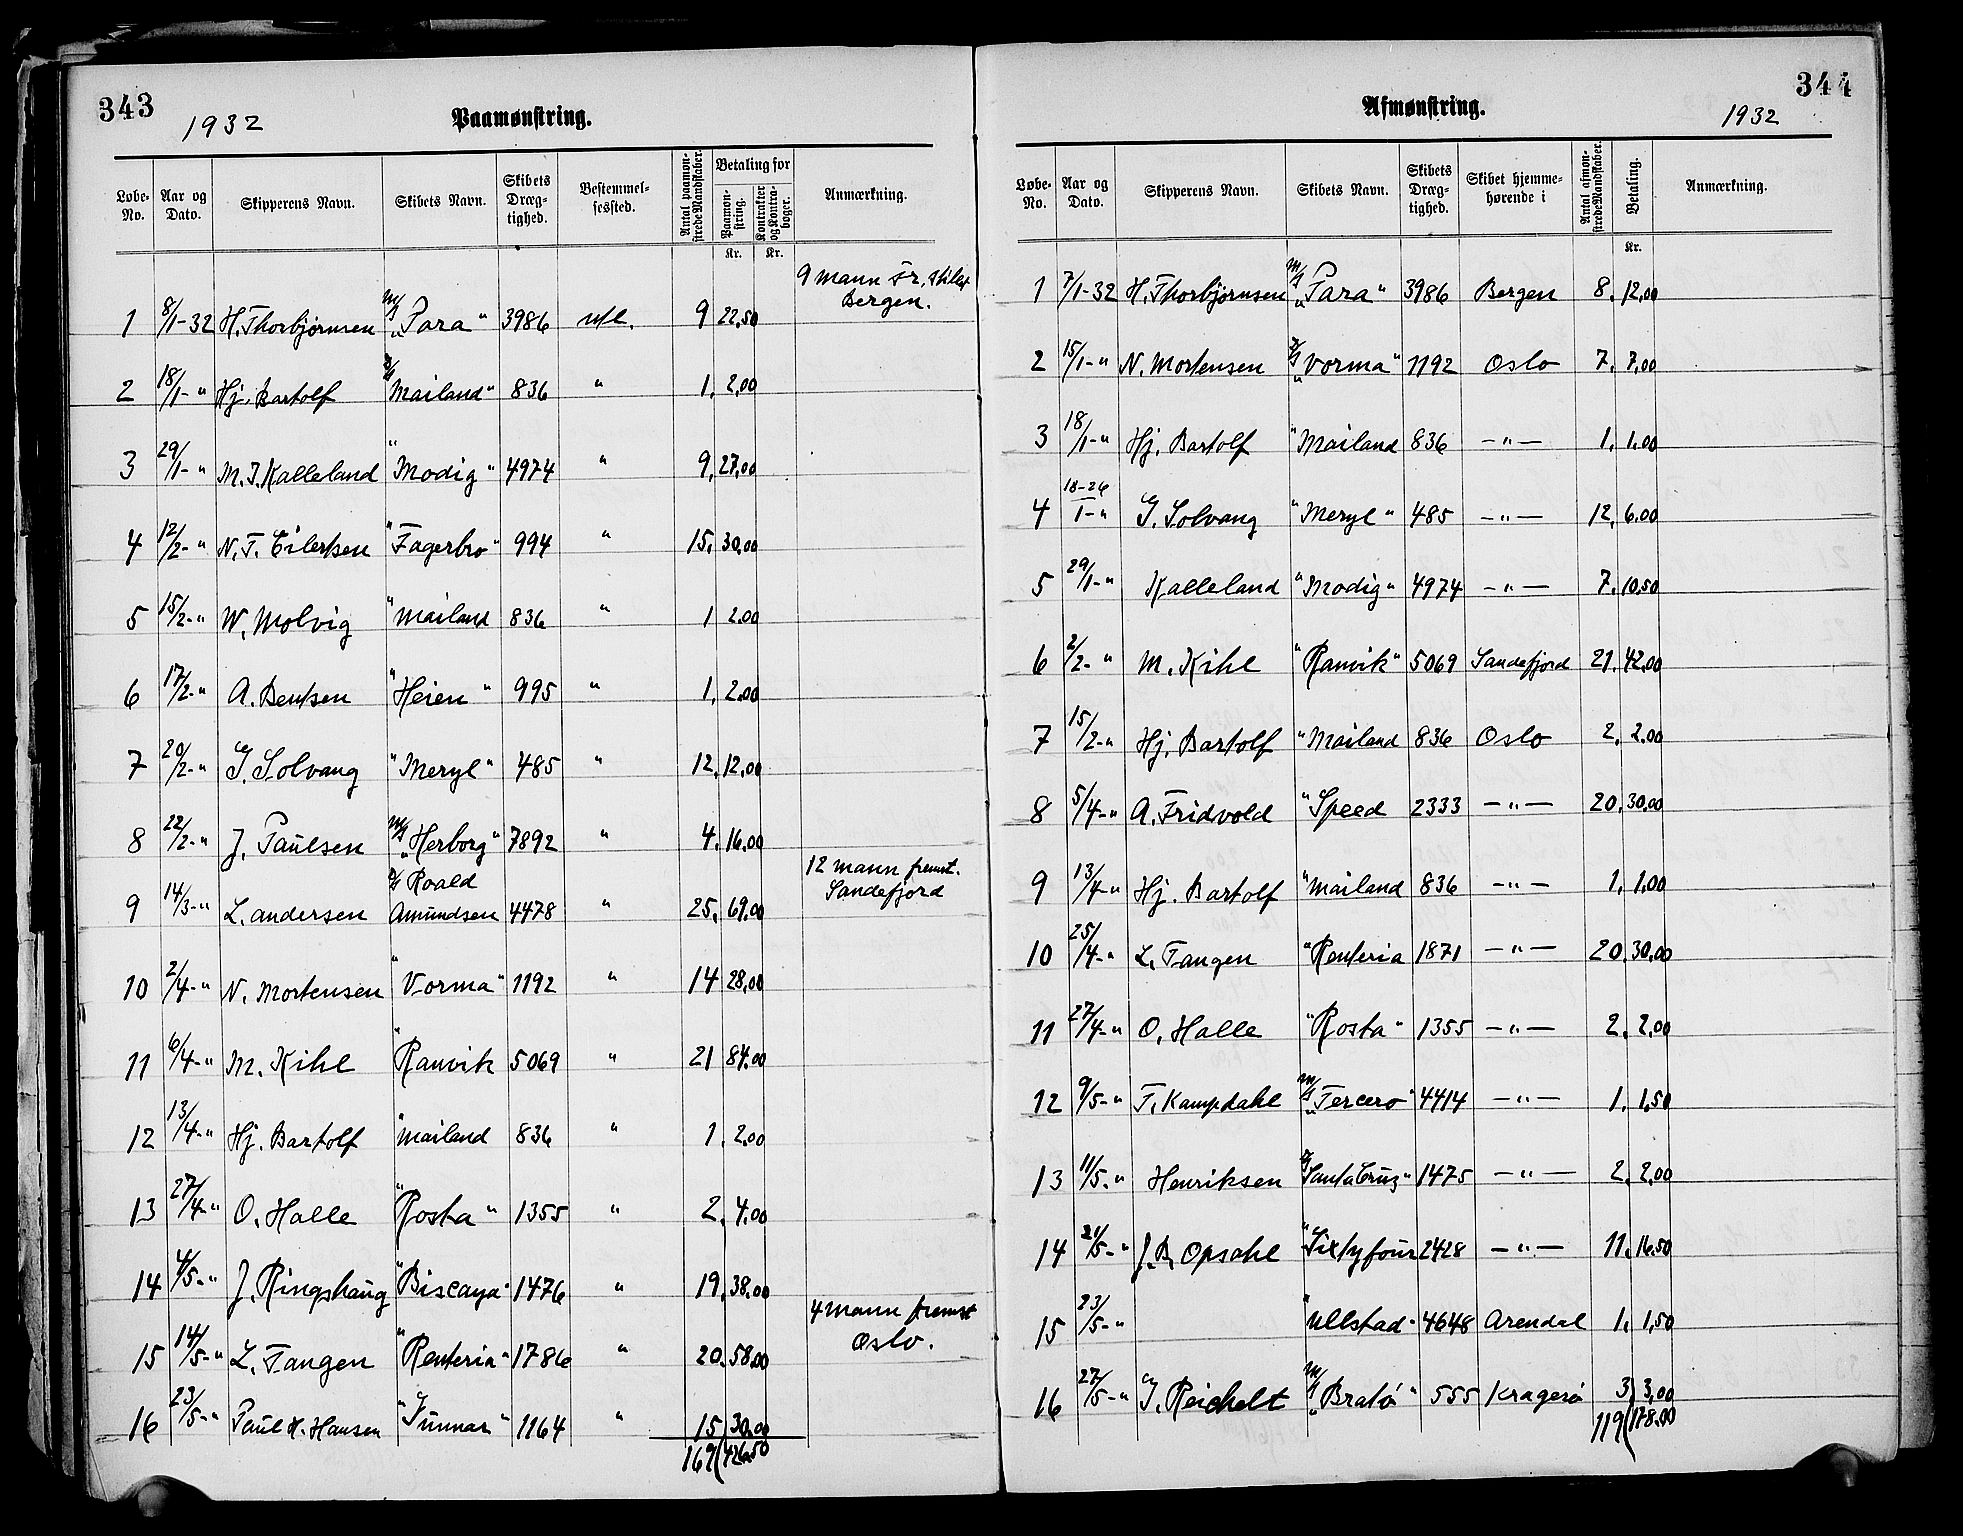 343
1932
Paamønstring.
Løbe-No. Aar og Dato. Skipperens Navn. Skibets Navn. Skibets Dræg-tighed. Bestemmel-sessted. Antal paamøn-strede Mandskaber. Betaling for Paamøn-string. Kontrakter og Kontra-bøger. Anmærkning.
Kr. Kr.
9 mann Fr.
Bergen.
1 8/1-32 H. Thorbjørnsen M/S „Para" 3986 utl. 9 22,50
2 18/1-" Hj. Bartolf D/S Mailand" 836 " 1. 2,00
3 29/1-" M. J. Kalleland "Modig" 4974 " 9. 27,00
4 12/2-" N. F. Eilertsen "Fagerbro" 994 " 15. 30,00
5 15/2-" W. Molvig "Mailand 836 " 1 2.00
6 17/2-" A. Bentsen "Heien" 995 " 1. 2.00
7 20/2-" G. Solvang "Meryl" 485 " 12. 12,00
8 22/2-" J. Paulsen M/S „Herborg" 7892 " 4. 16.00
12 mann fremst.
Sandefjord
9 14/3-" L. Andersen D/S Roald Amundsen 4478 " 25. 69.00
10 2/4-" N. Mortensen "Vorma" 1192 " 14 28,00
11 6/4-" M. Kihl "Ranvik 5069 " 21 84.00
12 13/4-" Hj. Bartolf "Mailand 836 " 1. 2.00
13 27/4-" O. Halle "Rosta" 1355 " 2. 4.00
14 4/5-" J. Ringshaug "Biscaya" 1476 " 19. 38.00
4 mann fremst
Oslo.
15 14/5-" L. Tangen "Renteria" 1786 " 20. 58.00
16 23/5-" Paul H. Hansen "Gunnar" 1164 " 15 30.00
169 426.50
344
Afmønstring.
1932
Løbe-No. Aar og Dato. Skipperens Navn. Skibets Navn. Skibets Dræg-tighed. Skibet hjemme-hørende i Antal afmøn-strede Mandskaber. Betaling. Anmærkning.
Kr.
1 7/1-32 H. Thorbjørnsen M/S „Para" 3986 Bergen 8. 12,00
2 15/1-" N. Mortensen D/S „Vorma" 1192 Oslo 7. 7,00
3 18/1-" Hj. Bartolf "Mailand 836 —"— 1. 1.00
4 18-26/1-" G. Solvang "Meryl" 485 —"— 12. 6.00
5 29/1-" Kalleland "Modig" 4974 —"— 7. 10,50
6 2/2-" M. Kihl "Ranvik" 5069 Sandefjord 21. 42,00
7 15/2-" Hj. Bartolf "Mailand 836 Oslo 2. 2.00
8 5/4-" A. Fridvold "Speed 2333 —"— 20. 30,00
9 13/4-" Hj. Bartolf "Mailand 836 —"— 1. 1,00
10 25/4-" L. Tangen "Renteria 1871 —"— 20. 30,00
11 27/4-" O. Halle "Rosta" 1355 —"— 2. 2,00
12 9/5-" T. Kampdahl M/S „Tercero" 4414 —"— 1. 1,50
13 11/5-" Henriksen D/S Santa Cruz" 1475 —"— 2. 2,00
14 21/5-" J. B. Opsahl "Sixtyfour 2428 —"— 11. 16.50
15 23/5-" "Ullstad" 4648 Arendal 1. 1,50
16 27/5-" G. Reichelt M/S „Bratø" 555 Kragerø 3 3,00
119 178.00